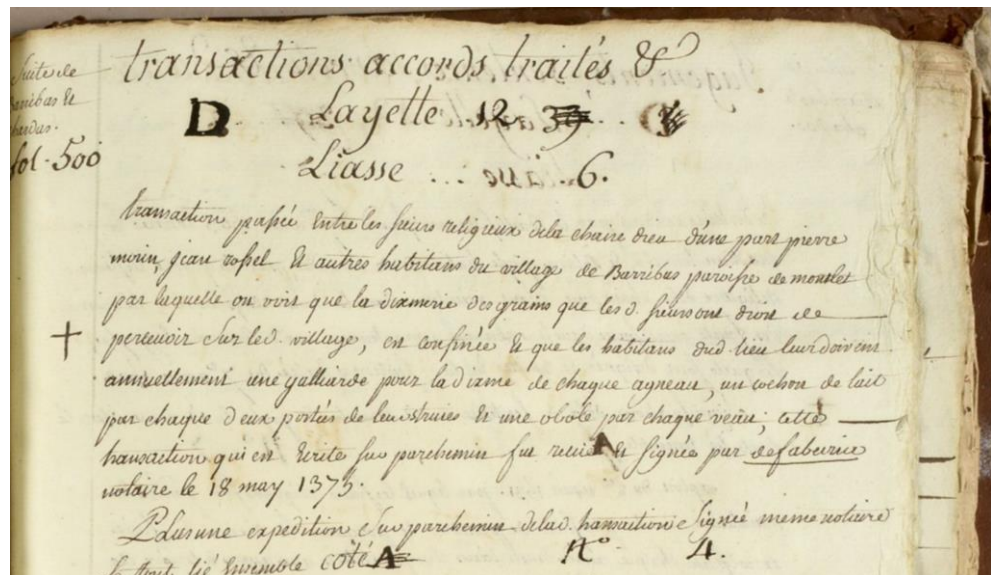 Suite de
Barribas et
fol. 500
transactions accords, traités &
D Layette 12
Liasse ... 6.
transaction passée Entre les sieurs religieux dela chaise dieu d'une part pierre
morin, jean rossel et autres habitans du village de Barribas paroisse de montlet
par laquelle on voit que la dixmerie des grains que les d. sieurs ont droit de
percevoir sur led. village, est confinée et que les habitans dud. lieu leur doivent
annuellement une galliarde pour la dixme de chaque agneau, un cochon de lait
par chaque deux portés de leurs truies et une obole par chaque veau; cette
transaction qui est Ecrite sur parchemin fut reçüe et signée par defabrica
notaire le 18 may 1373.
Plus une expedition sur parchemin delad. transaction signée meme notaire
le tout lié Ensemble coté A n.° 4.